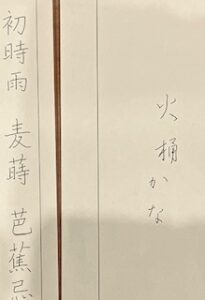 火桶かな
初時雨 麦蒔 芭蕉忌